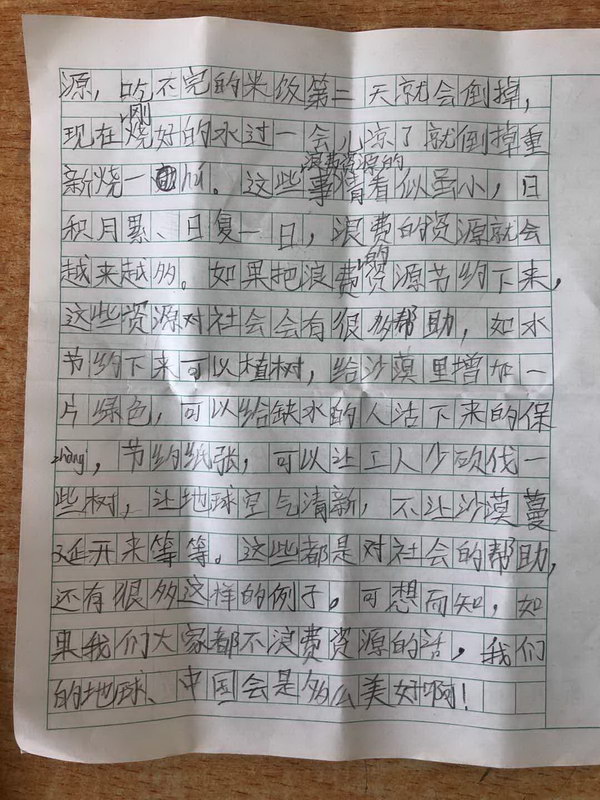 源，吃不完的米饭第二天就会倒掉，
现在刚烧好的水过一会儿凉了就倒掉重
新烧一hú。这些浪费资源的事情看似虽小，日
积月累、日复一日，浪费的资源就会
越来越多。如果把浪费的资源节约下来，
这些资源对社会会有很多帮助，如水
节约下来可以植树，给沙漠里增加一
片绿色，可以给缺水的人活下来的保
zhàng，节约纸张，可以让工人少砍伐一
些树，让地球空气清新，不让沙漠蔓
延开来等等。这些都是对社会的帮助，
还有很多这样的例子。可想而知，如
果我们大家都不浪费资源的话，我们
的地球、中国会是多么美好啊！